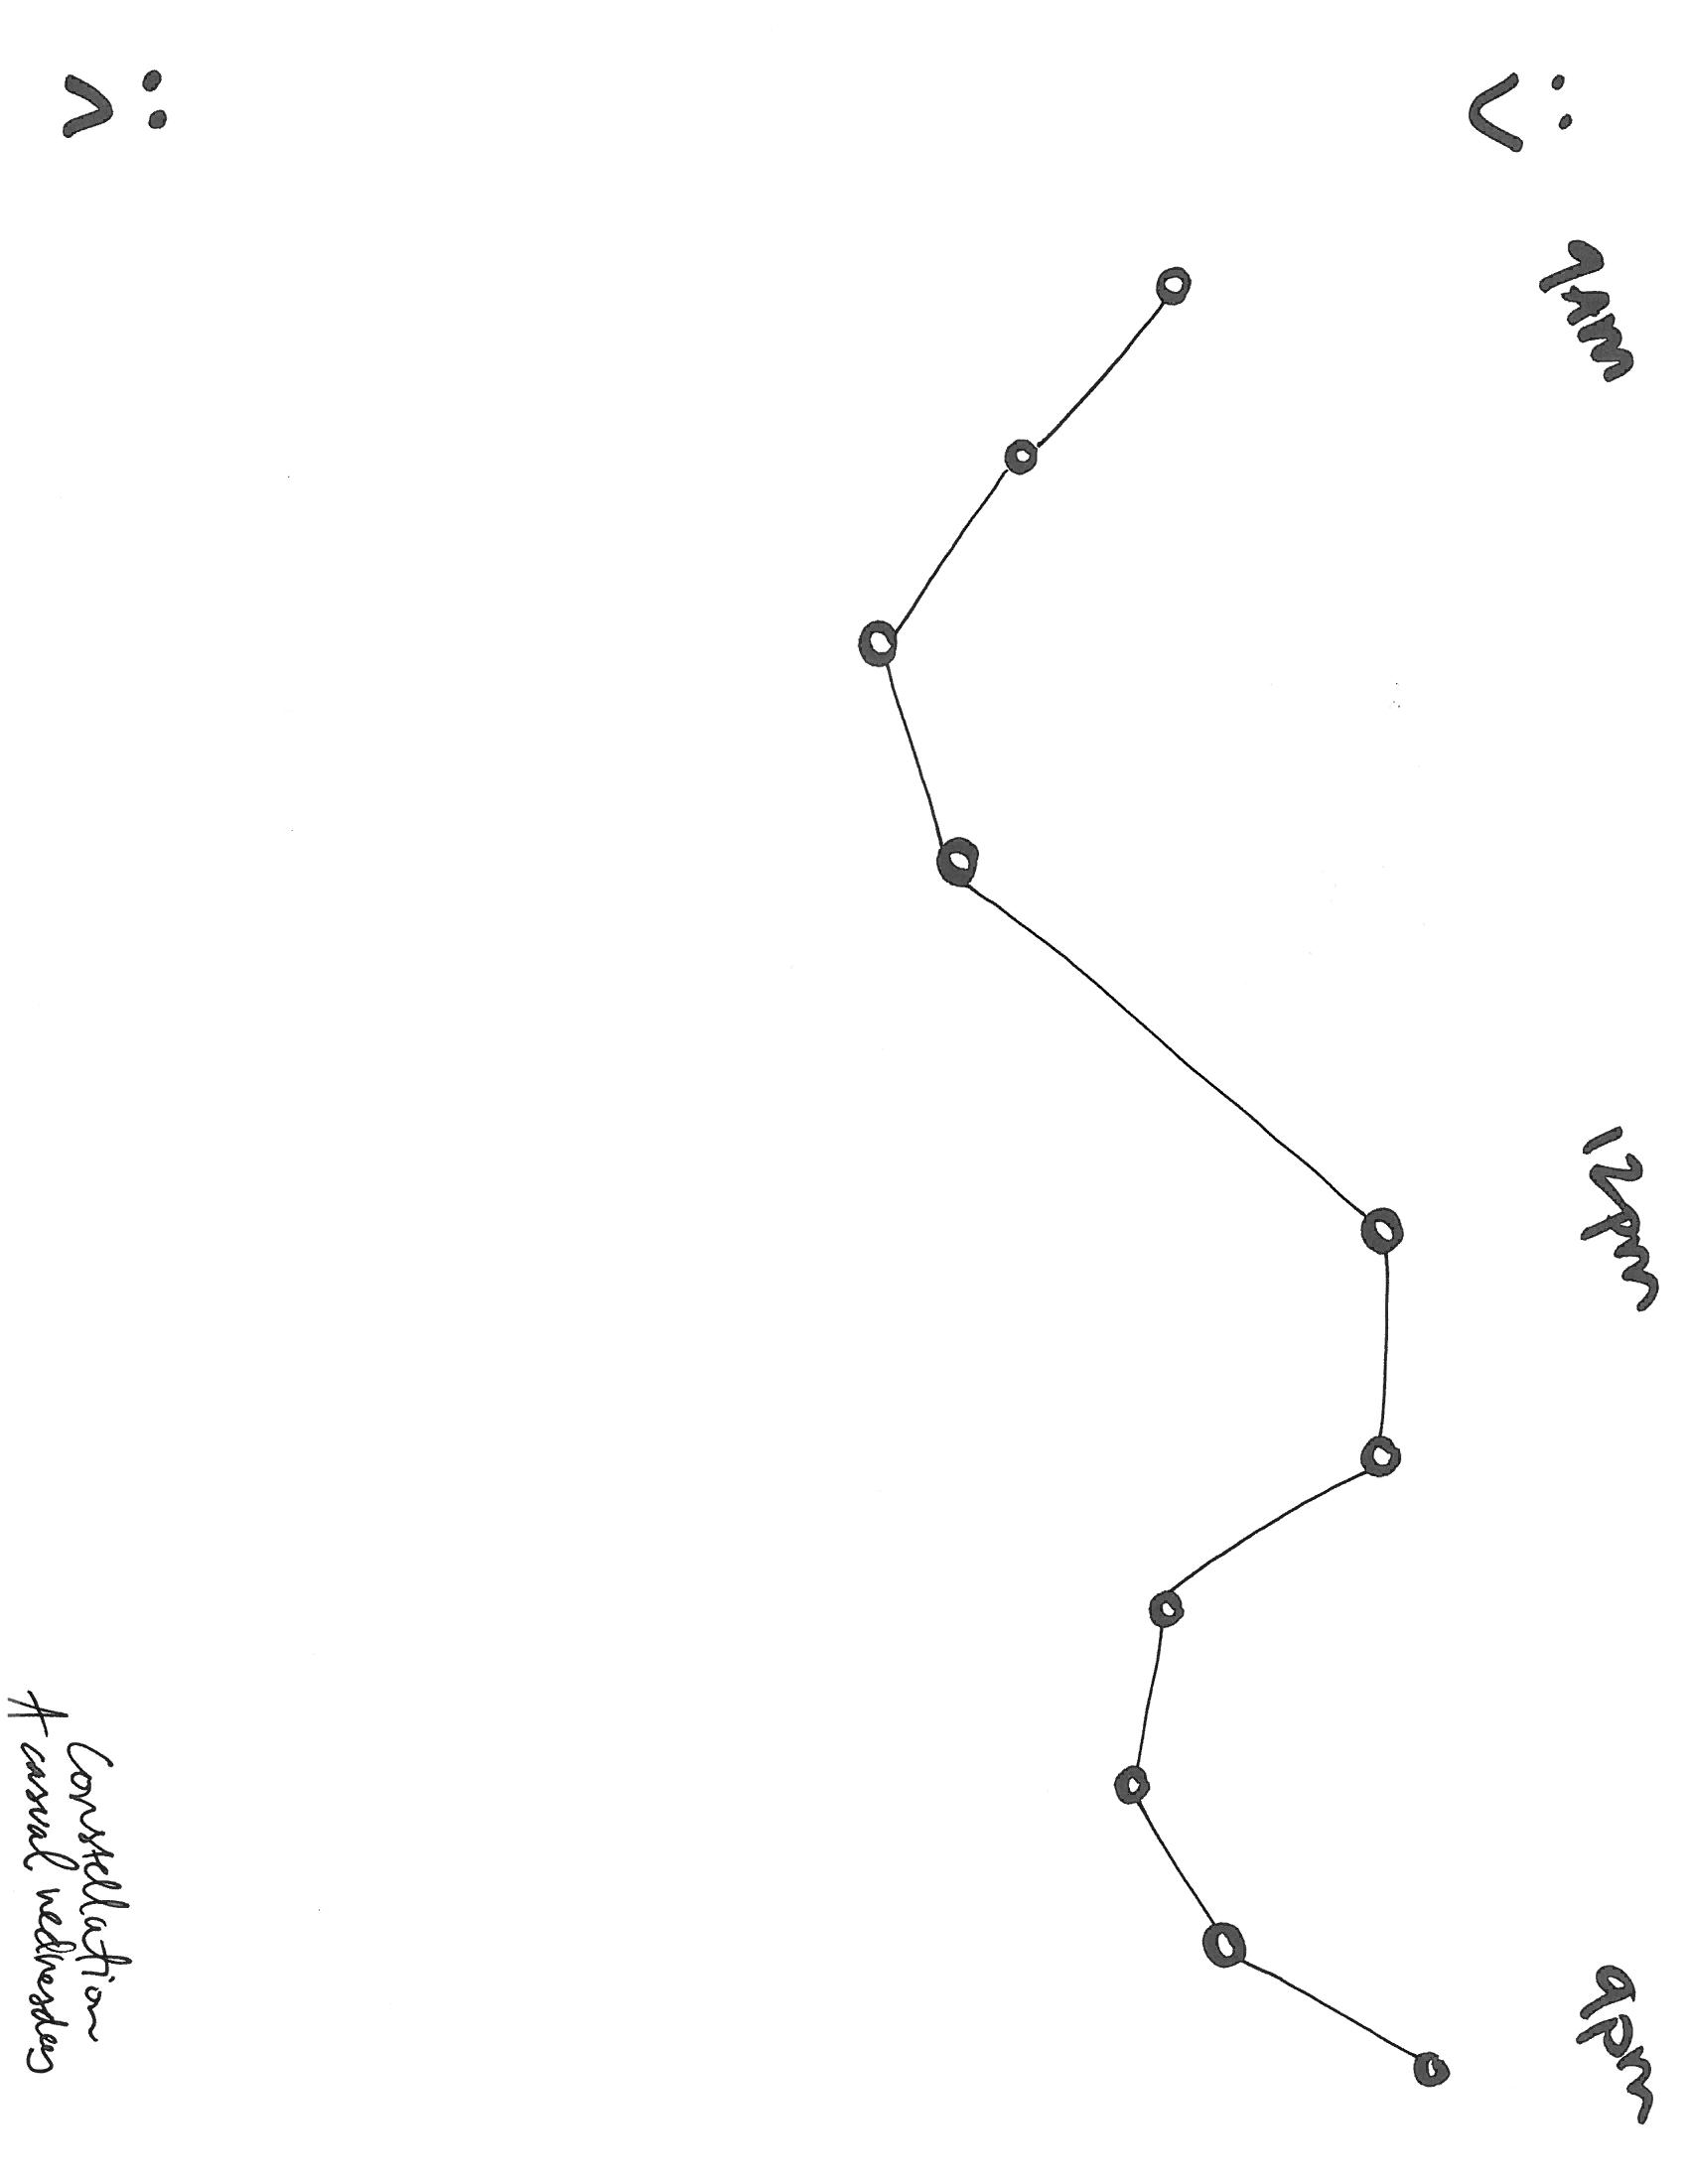 7AM 12pm 9pm
:)
:(
Constellation
A casual wednesday